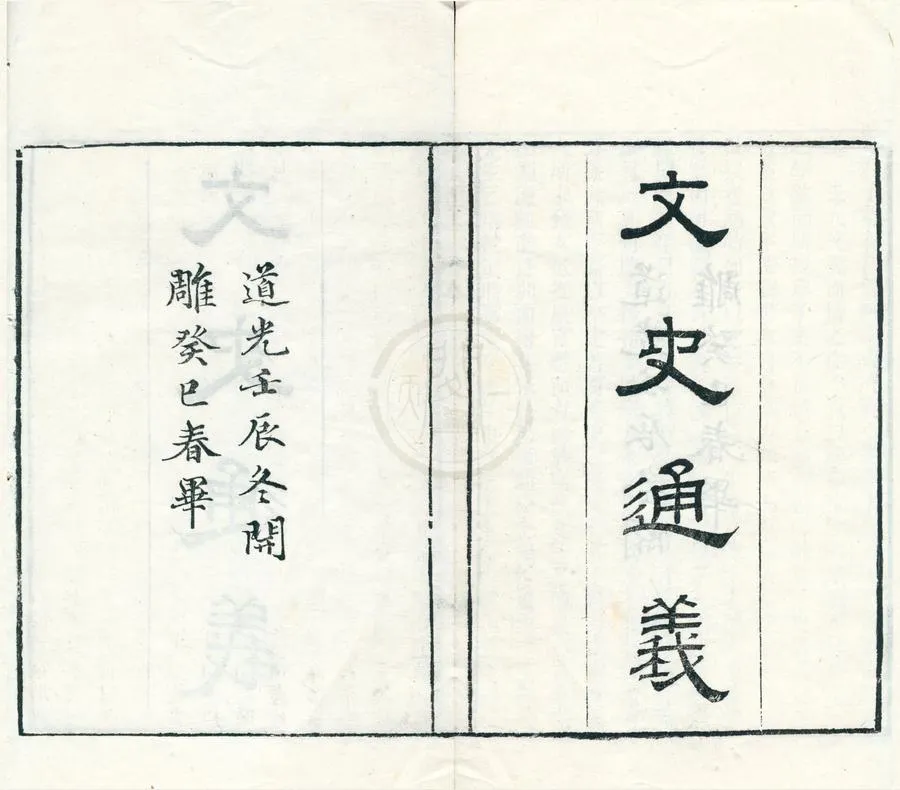 文史通義
道光壬辰冬開
雕癸巳春畢